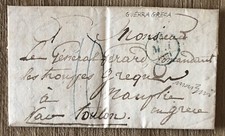 GUERRA GRECA
Monsieur
Le Général Gérard Commandant
les troupes Grecques
à Nauplie
par Toulon. en Grèce